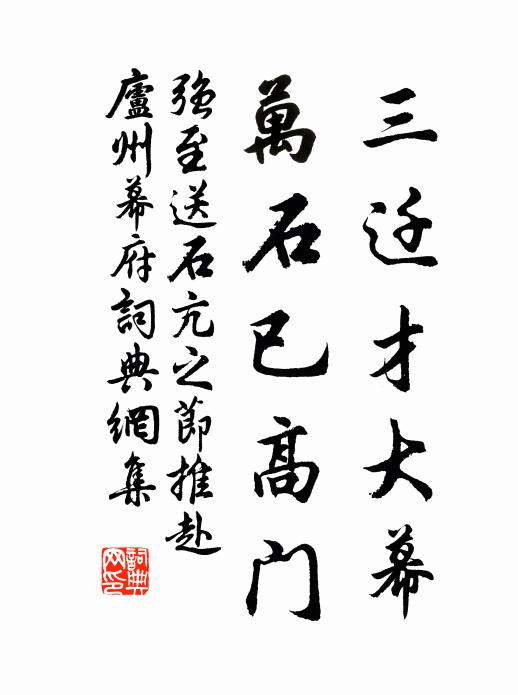 三迁才大幕
萬石已高门
強至送石亢之節推赴
廬州幕府詞典網集
詞典网印